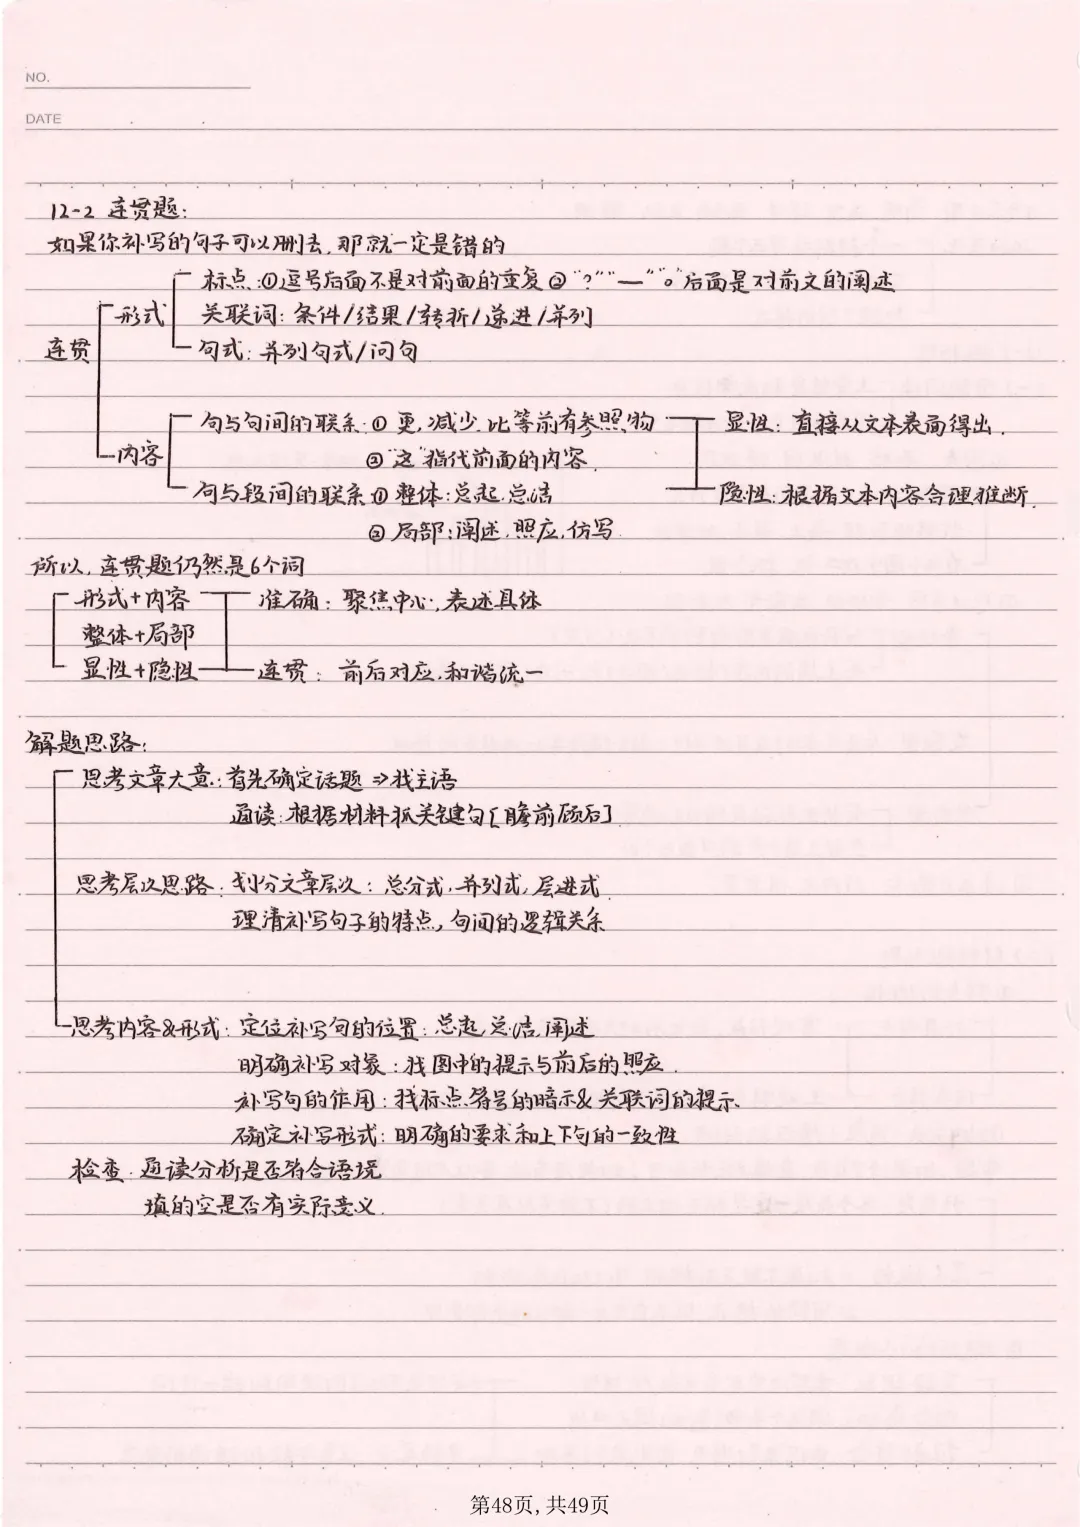 NO.
DATE
12-2 连贯题:
如果你补写的句子可以删去,那就一定是错的
标点:①逗号后面不是对前面的重复②"?""—""。"后面是对前文的阐述
形式 关联词:条件/结果/转折/递进/并列
连贯 句式:并列句式/问句
句与句间的联系:①更,减少,比等前有参照物 显性:直接从文本表面得出.
内容 ②"这"指代前面的内容.
句与段间的联系①整体:总起,总结 隐性:根据文本内容合理推断.
②局部:阐述,照应,仿写.
所以,连贯题仍然是6个词
形式+内容 准确:聚焦中心,表述具体
整体+局部
显性+隐性 连贯:前后对应,和谐统一
解题思路:
思考文章大意:首先确定话题⇒找主语
通读:根据材料抓关键句[瞻前顾后]
思考层次思路:划分文章层次:总分式,并列式,层进式
理清补写句子的特点,句间的逻辑关系
思考内容&形式:定位补写句的位置:总起,总结,阐述
明确补写对象:找图中的提示与前后的照应.
补写句的作用:找标点符号的暗示&关联词的提示、
确定补写形式:明确的要求和上下句的一致性
检查:通读分析是否符合语境
填的空是否有实际意义.
第48页,共49页